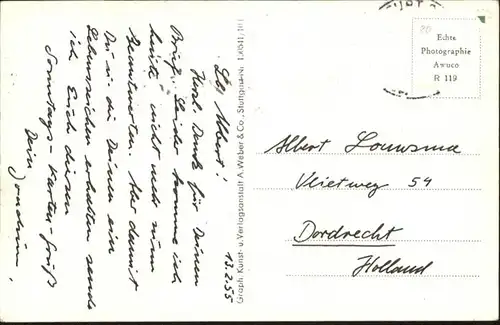 13.2.55
Lb. Albert!
Herzl. Dank für Deinen
Brief. Leider komme ich
heute nicht mehr zum
Beantworten. Aber damit
Du u. die Deinen ein
Lebenszeichen erhalten sende
ich Euch diesen
Sonntags-Karten-Gruß
Dein
Graph. Kunst- u. Verlagsanstalt A. Weber & Co., Stuttgart
Echte
Photographie
Awuco
R 119
80
Albert Louwsma
Vlietweg 54
Dordrecht
Holland